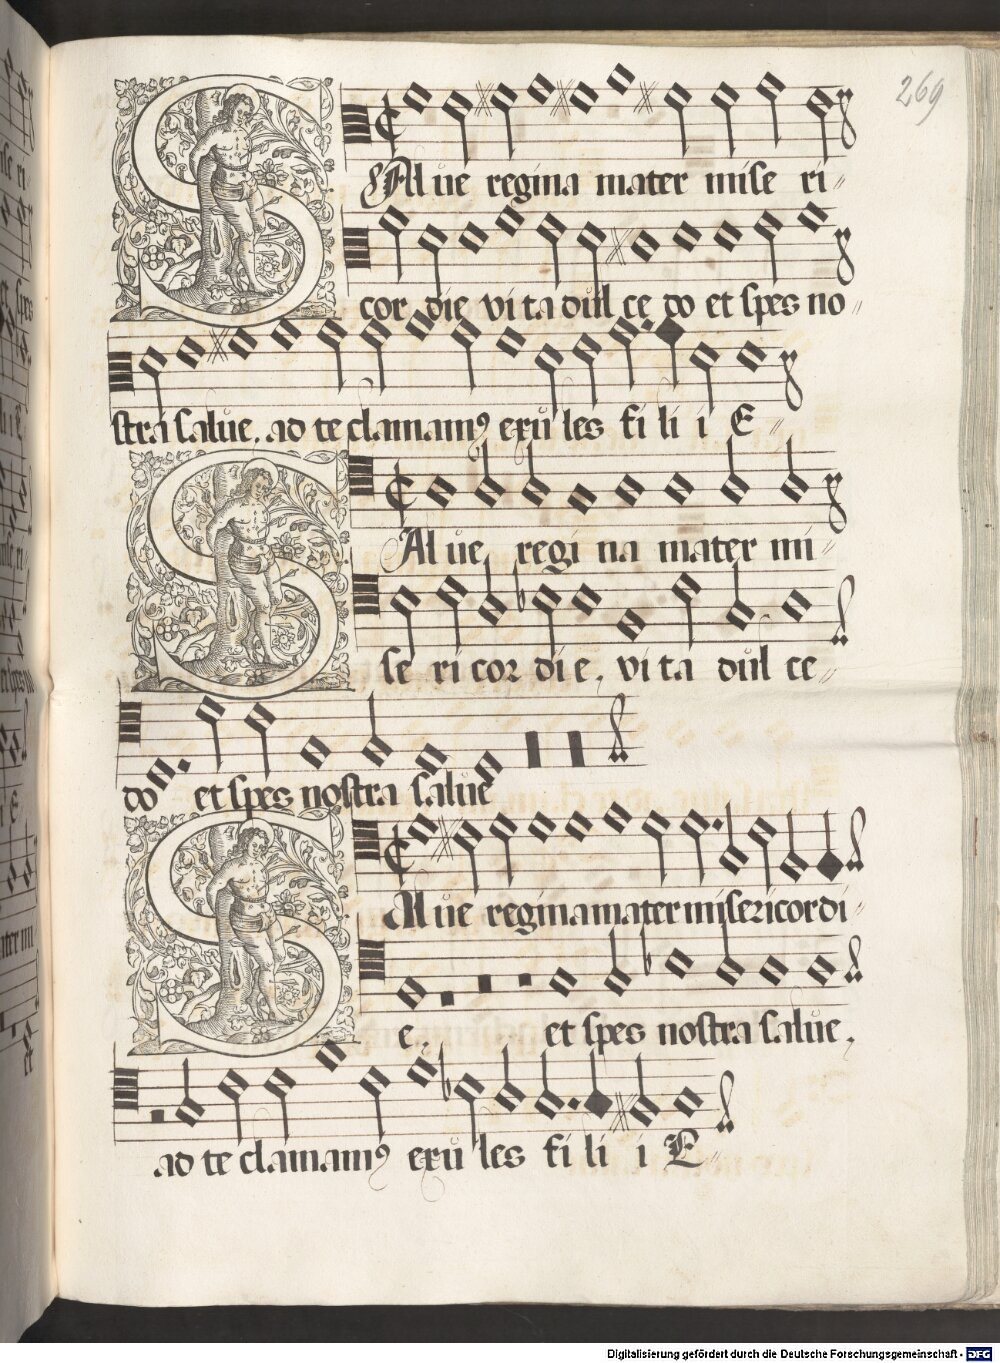 269
SAl ue regina mater mise ri
cor die vi ta dul ce do et spes no
stra salue. ad te clamamꝰ exu les fi li i E
SAl ue regi na mater mi
se ri cor di e, vi ta dul ce
do et spes nostra salue
SAl ue regina mater misericordi
e. et spes nostra salue,
ad te clamamꝰ exu les fi li i E
Digitalisierung gefördert durch die Deutsche Forschungsgemeinschaft - DFG